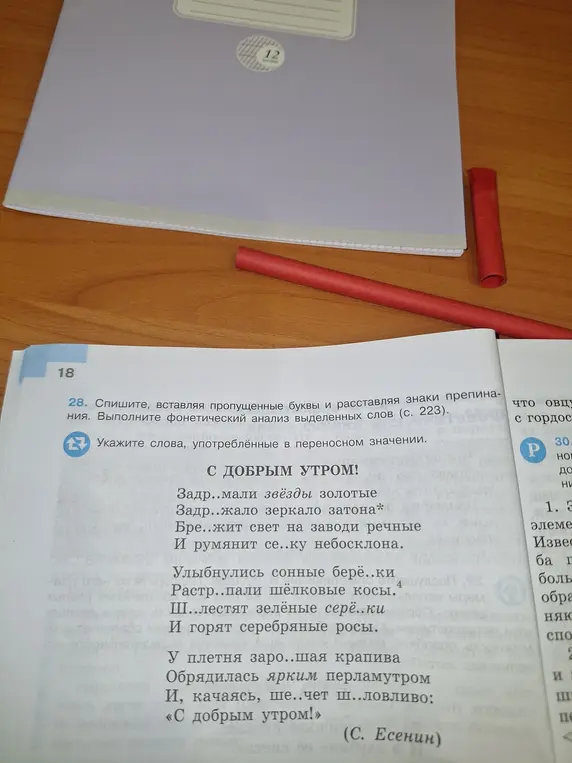 12
18
28. Спишите, вставляя пропущенные буквы и расставляя знаки препина-
ния. Выполните фонетический анализ выделенных слов (с. 223).
Укажите слова, употреблённые в переносном значении.
С ДОБРЫМ УТРОМ!
Задр..мали звёзды золотые
Задр..жало зеркало затона*
Бре..жит свет на заводи речные
И румянит се..ку небосклона.
Улыбнулись сонные берё..ки
Растр..пали шёлковые косы.4
Ш..лестят зелёные серё..ки
И горят серебряные росы.
У плетня заро..шая крапива
Обрядилась ярким перламутром
И, качаясь, ше..чет ш..ловливо:
«С добрым утром!»
(С. Есенин)
что овц
с гордос
Р
30.
но
до
ни
1. З
элеме
Извес
ба п
боль
обра
няю
спо
2
и
ш
пе